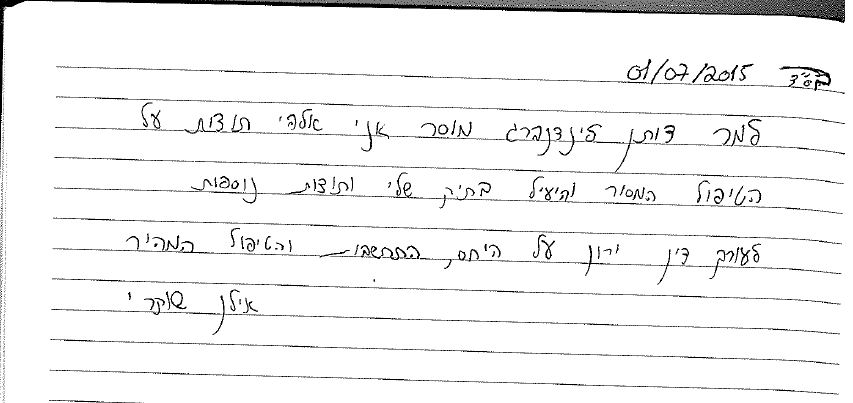 בס"ד 01/07/2015
למר דותן לינדנברג מוסר אני אלפי תודות על
הטיפול המסור והיעיל בתיק שלי ותודות נוספות
לעורך דין ירון על היחס, התחשבות והטיפול המהיר
אילן שוקרי